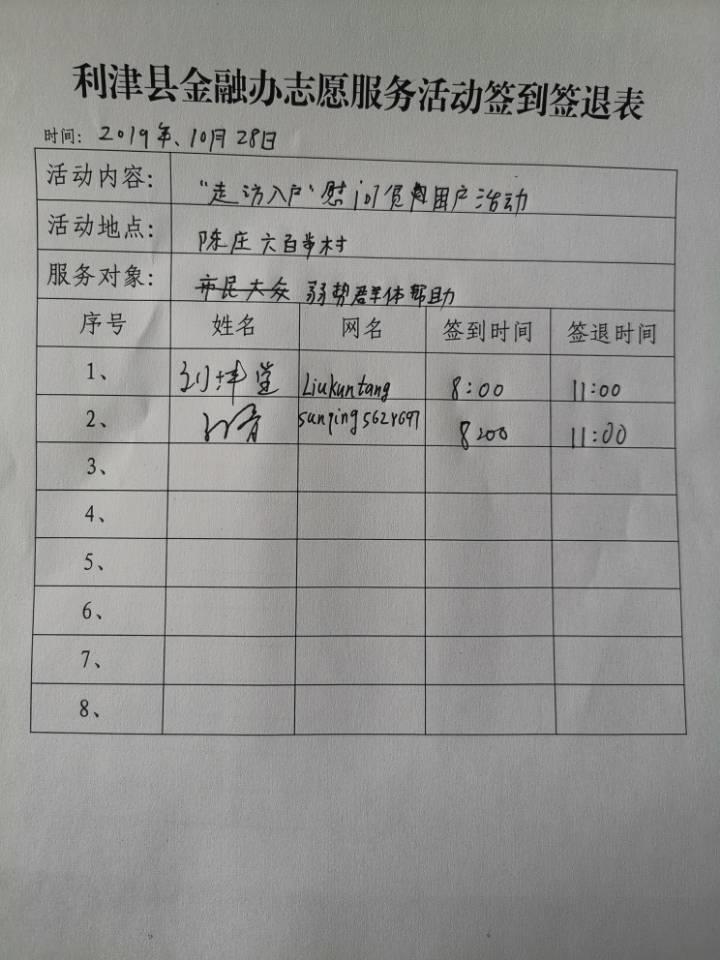 利津县金融办志愿服务活动签到签退表
时间：2019年、10月28日
活动内容： "走访入户"慰问贫困户活动
活动地点： 陈庄六百步村
服务对象： 市民大众 弱势群体帮助
序号 姓名 网名 签到时间 签退时间
1、 刘坤堂 Liukuntang 8:00 11:00
2、 8:00 11:00
3、
4、
5、
6、
7、
8、